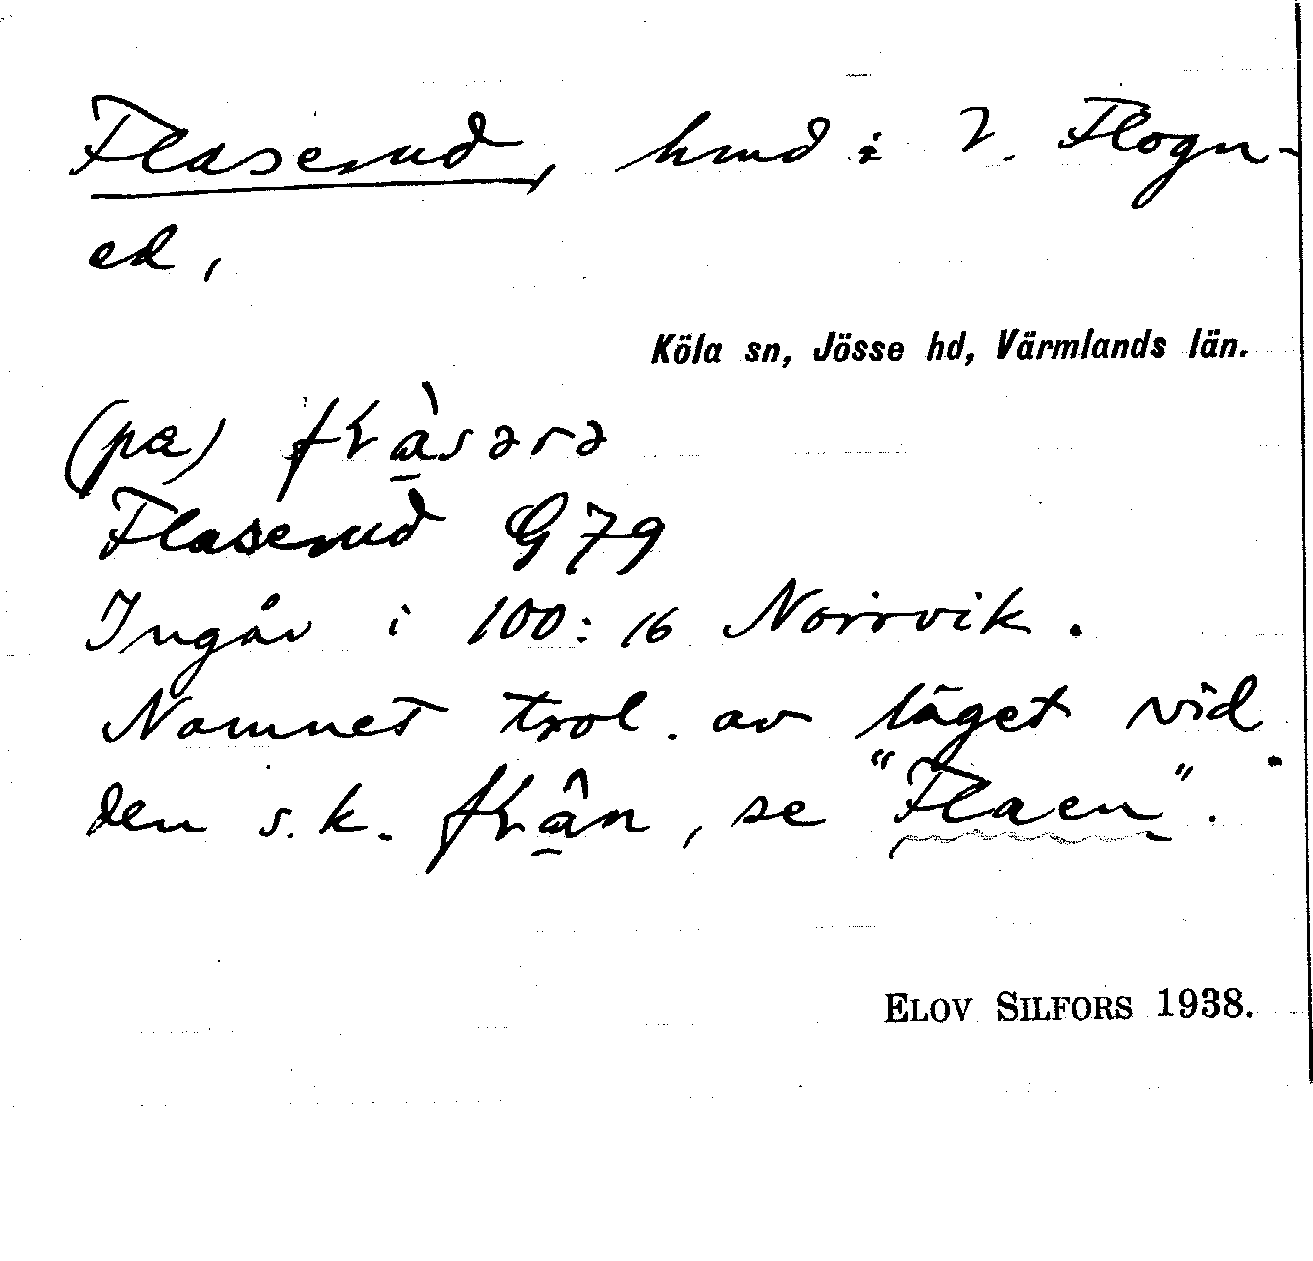 Flaserud, hmd i V. Flogn-
ed,
Köla sn, Jösse hd, Värmlands län.
(pa)
Flaserud G 79
Ingår i 100:16 Norrvik.
Namnet trol. av läget vid
den s.k. , se "Flaen".
ELOV SILFORS 1938.